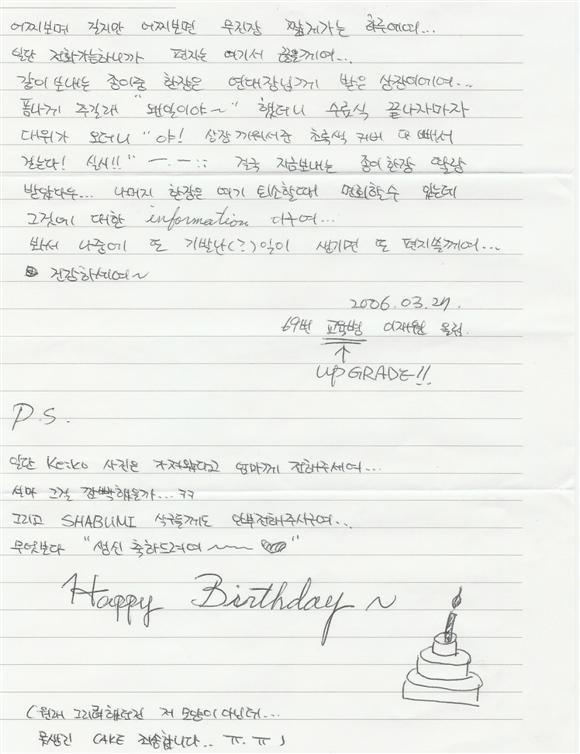 어찌보면 길지만 어찌보면 무진장 짧게가는 하루에여...
일단 전화가능하니까 편지는 여기서 끊을께여...
같이보내는 종이중 한장은 연대장님께 받은 상장이에여...
폼나게 주길래 "왠일이야~" 했더니 수료식 끝나자마자
대위가 오더니 "야! 상장 끼워서준 초록색 커버 다 빼서
걷는다! 실시!!" ㅡ.ㅡ;; 결국 지금보내는 종이한장 딸랑
받았다우... 나머지 한장은 여기 퇴소할때 면회할수 있는데
그것에 대한 information 이구여...
봐서 나중에 또 기발난(?)일이 생기면 또 편지쓸께여...
건강하세여~
2006.03.27.
69번 교육병 이재원 올림.
↑
UPGRADE!!
P.S.
일단 Keiko 사진은 가져왔다고 엄마께 전해주세여...
설마 그걸 깜빡했을까... ㅋㅋ
그리고 SHABUMI 식구들께도 안부전해주시구여...
무엇보다 "생신 축하드려여~~~"
Happy Birthday ~
(원래 그리려했던건 저 모양이 아닌데...
못생긴 CAKE 죄송합니다.. ㅠ.ㅠ)